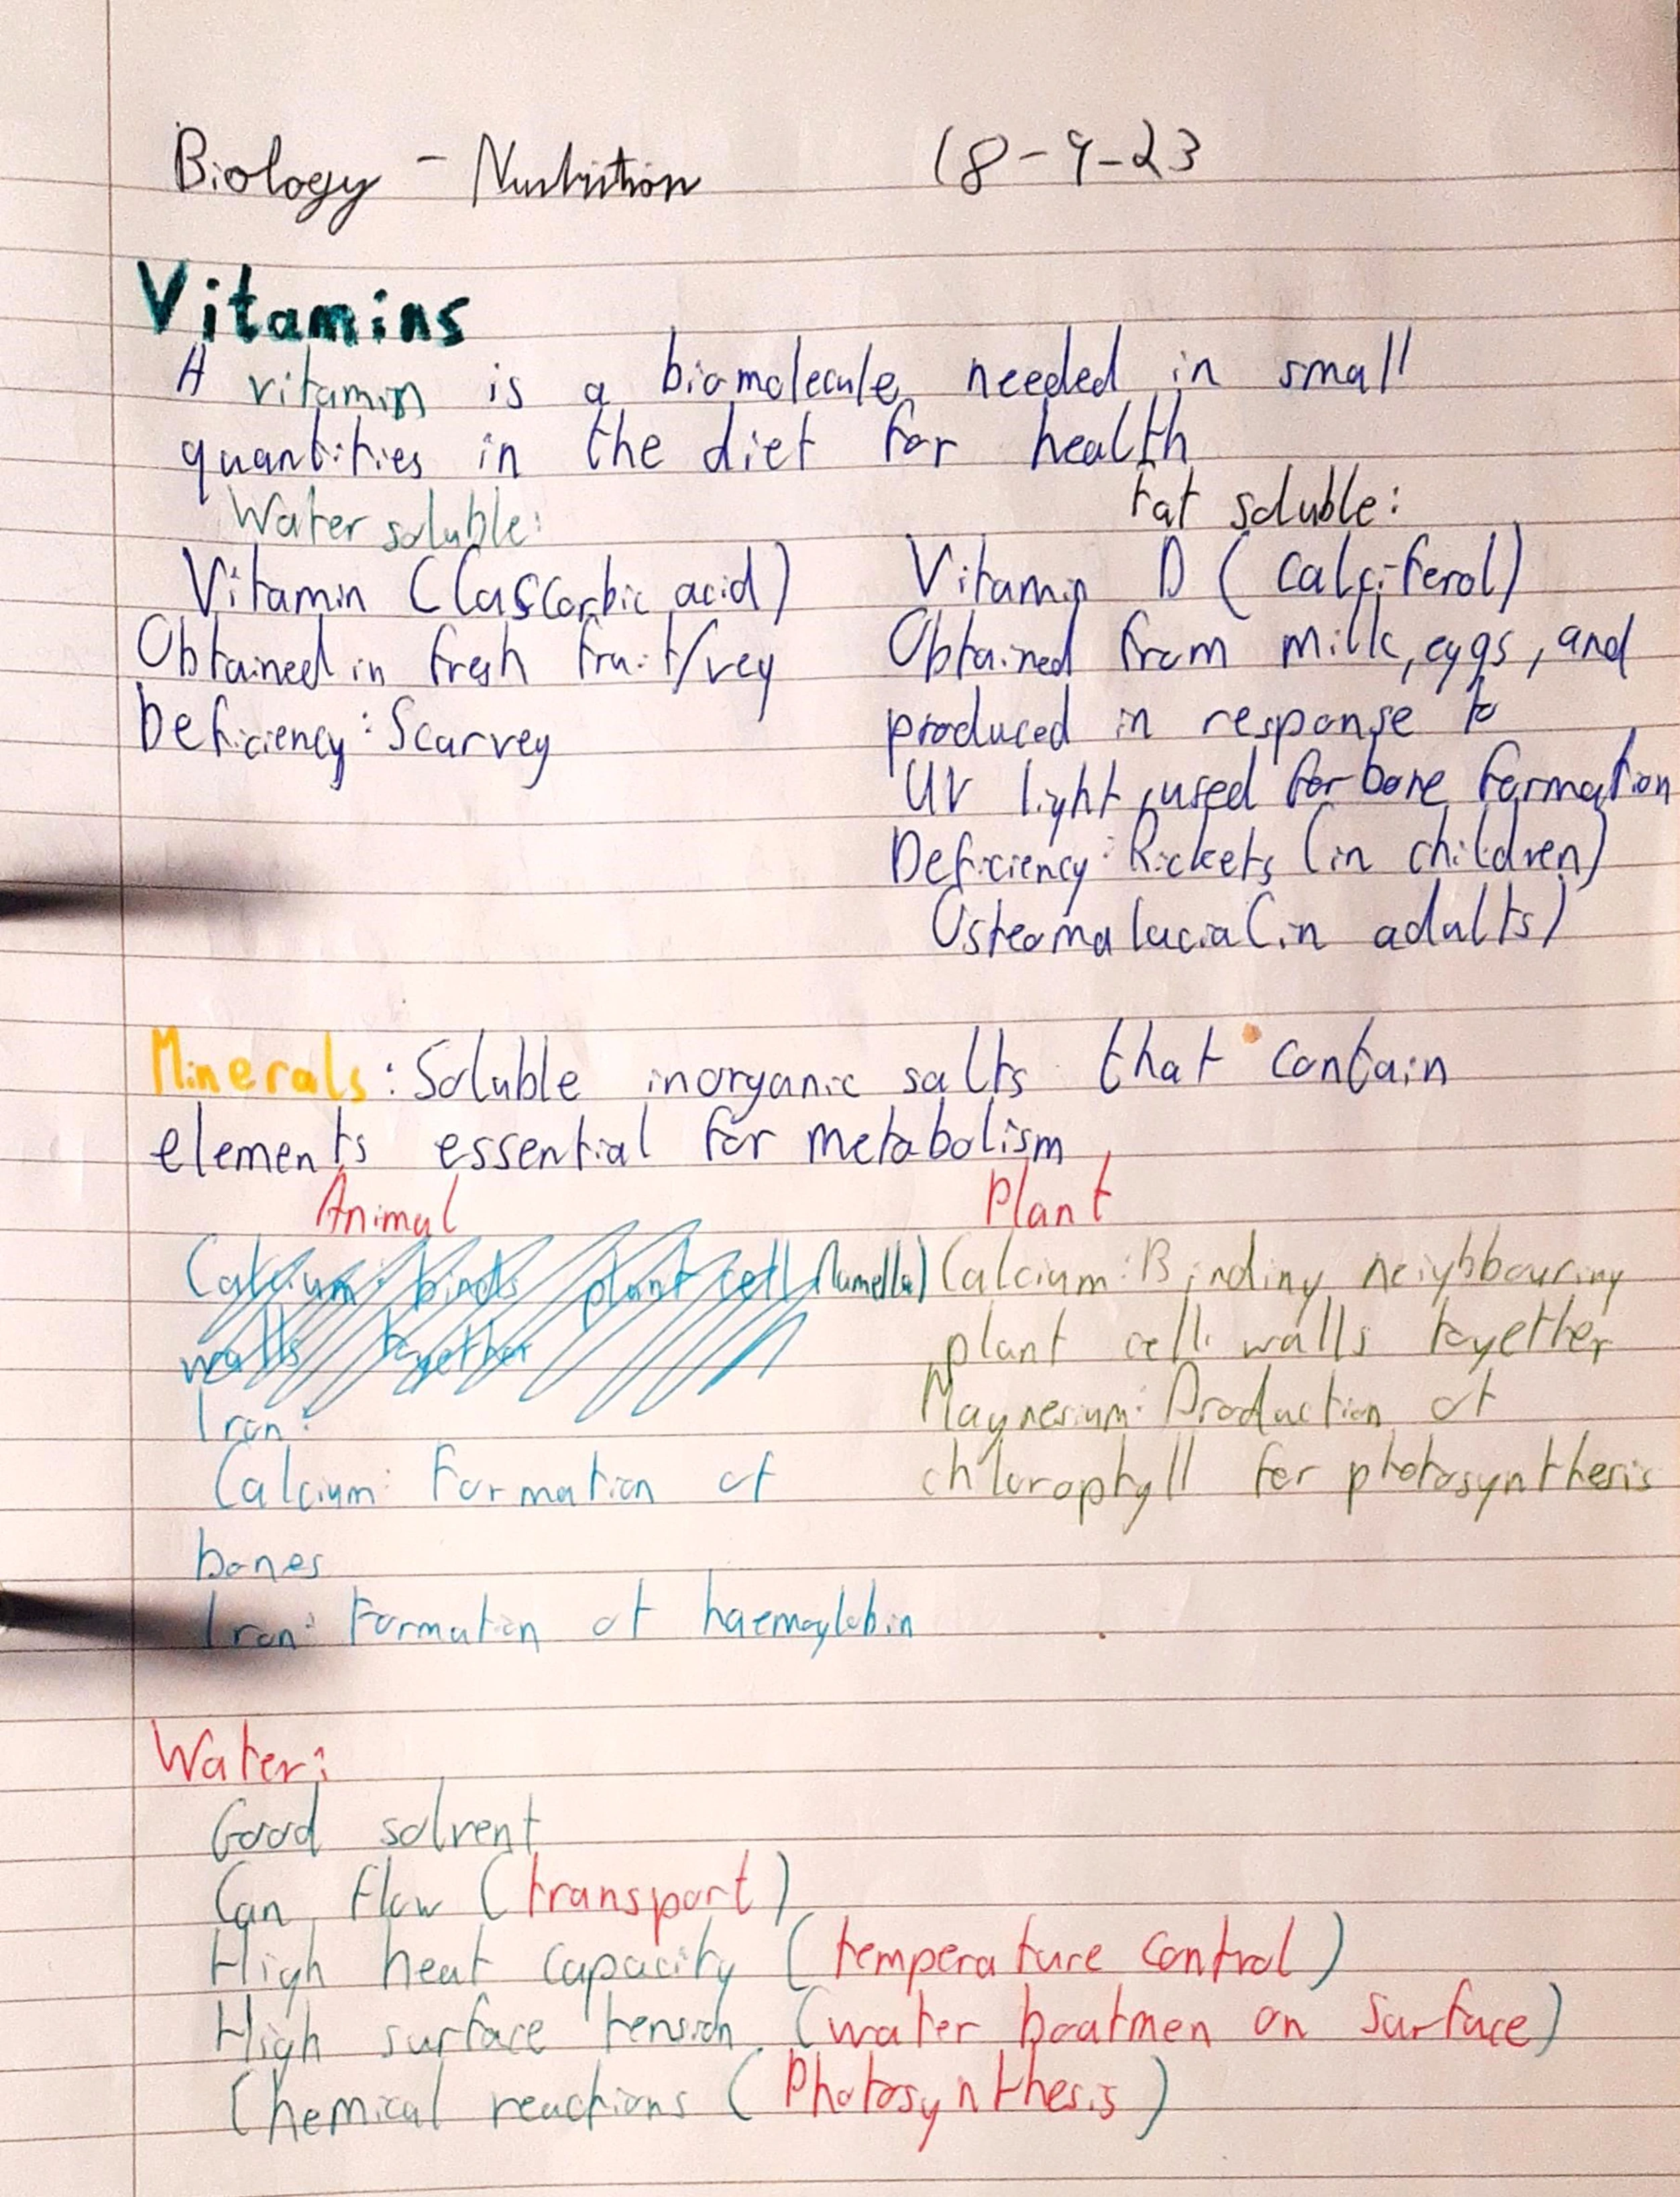 Biology - Nutrition 18-9-23
Vitamins
A vitamin is a biomolecule needed in small
quantities in the diet for health
Water soluble:
Vitamin C (ascorbic acid)
Obtained in fresh fruit/veg
Deficiency: Scurvey
Fat soluble:
Vitamin D (calciferol)
Obtained from milk, eggs, and
produced in response to
UV light, used for bone formation
Deficiency: Rickets (in children)
Osteomalacia (in adults)
Minerals: Soluble inorganic salts that contain
elements essential for metabolism
Animal
Calcium: binds plant cell (lamella)
walls together
Iron:
Calcium: Formation of
bones
Iron: Formation of haemoglobin
Plant
Calcium: Binding neighbbouring
plant cell walls together
Magnesium: Production of
chlorophyll for photosynthesis
Water:
Good solvent
Can flow (transport)
High heat capacity (temperature control)
High surface tension (water boatmen on surface)
Chemical reactions (Photosynthesis)